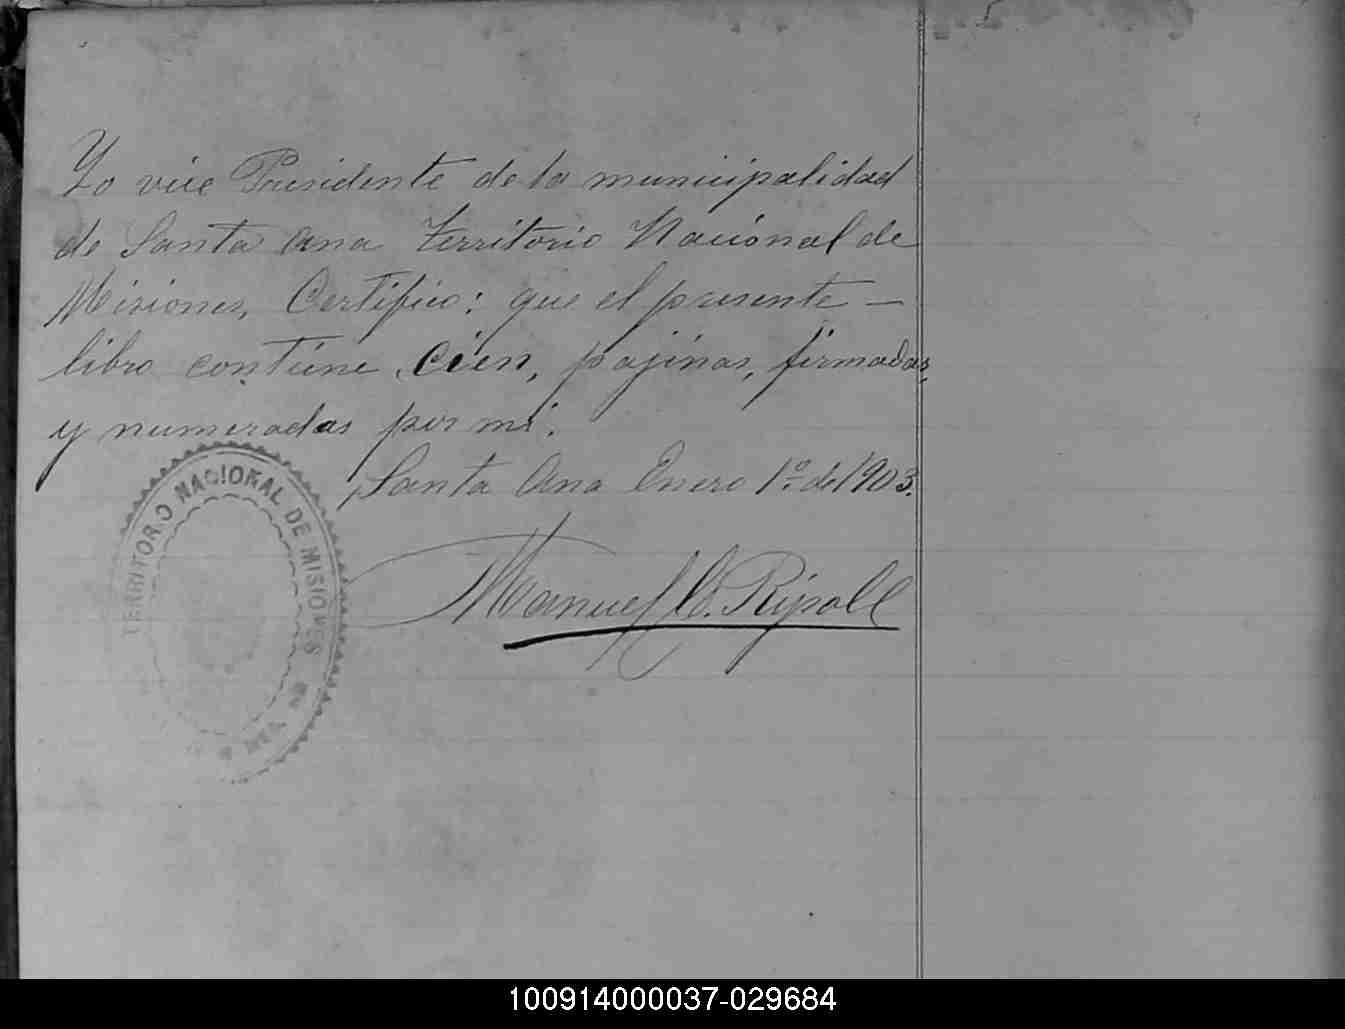 Yo vice Presidente de la municipalidad
de Santa Ana Territorio Nacional de
Misiones, Certifico: que el presente —
libro contiene, cien, pajinas, firmadas,
y numeradas por mi.
Santa Ana Enero 1º de 1903.
Manuel Ripoll
TERRITORIO NACIONAL DE MISIONES
100914000037-029684